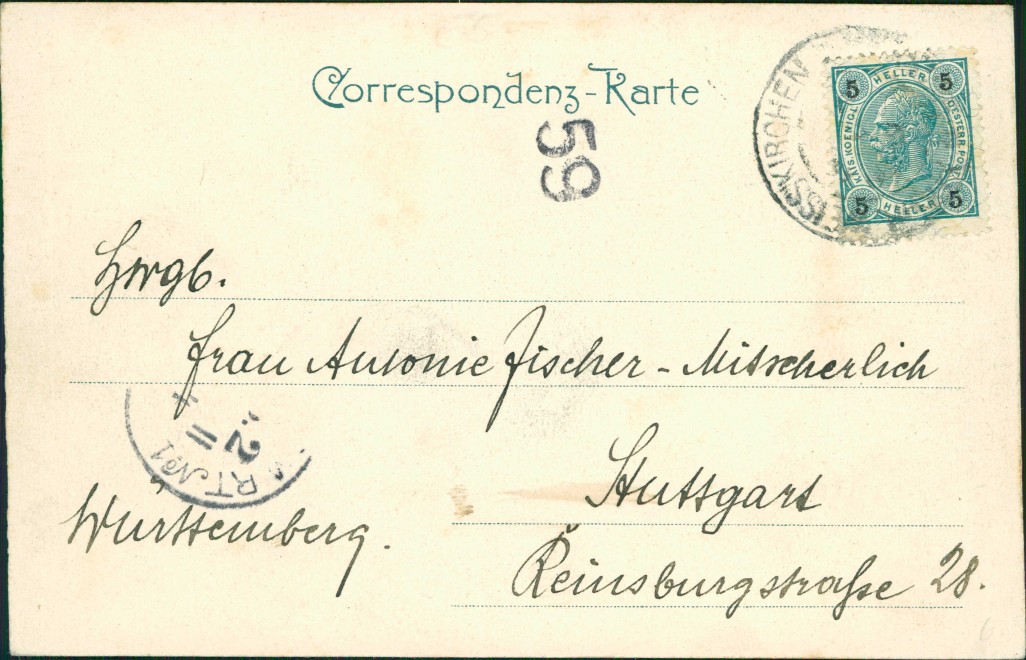 Correspondenz-Karte
5 HELLER 5
KAIS. KOENIGL. OESTERR. POST
5 HELLER 5
EISSKIRCHEN
59
Frau Antonie Fischer-Mitscherlich
Stuttgart
Württemberg.
Reinsburgstraße 28.
RT. No 1
2 II